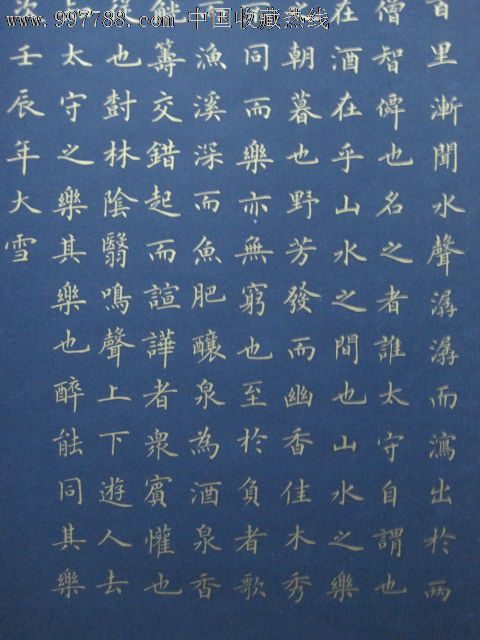 www.997788.com 中国收藏热线
百里漸聞水聲潺潺而瀉出於兩
僧智僊也名之者誰太守自謂也
在酒在乎山水之間也山水之樂
朝暮也野芳發而幽香佳木秀
同而樂亦無窮也至於負者歌
漁溪深而魚肥釀泉為酒泉香
觥籌交錯起而諠譁者眾賓懽也
也樹林陰翳鳴聲上下遊人去
太守之樂其樂也醉能同其樂
次壬辰年大雪